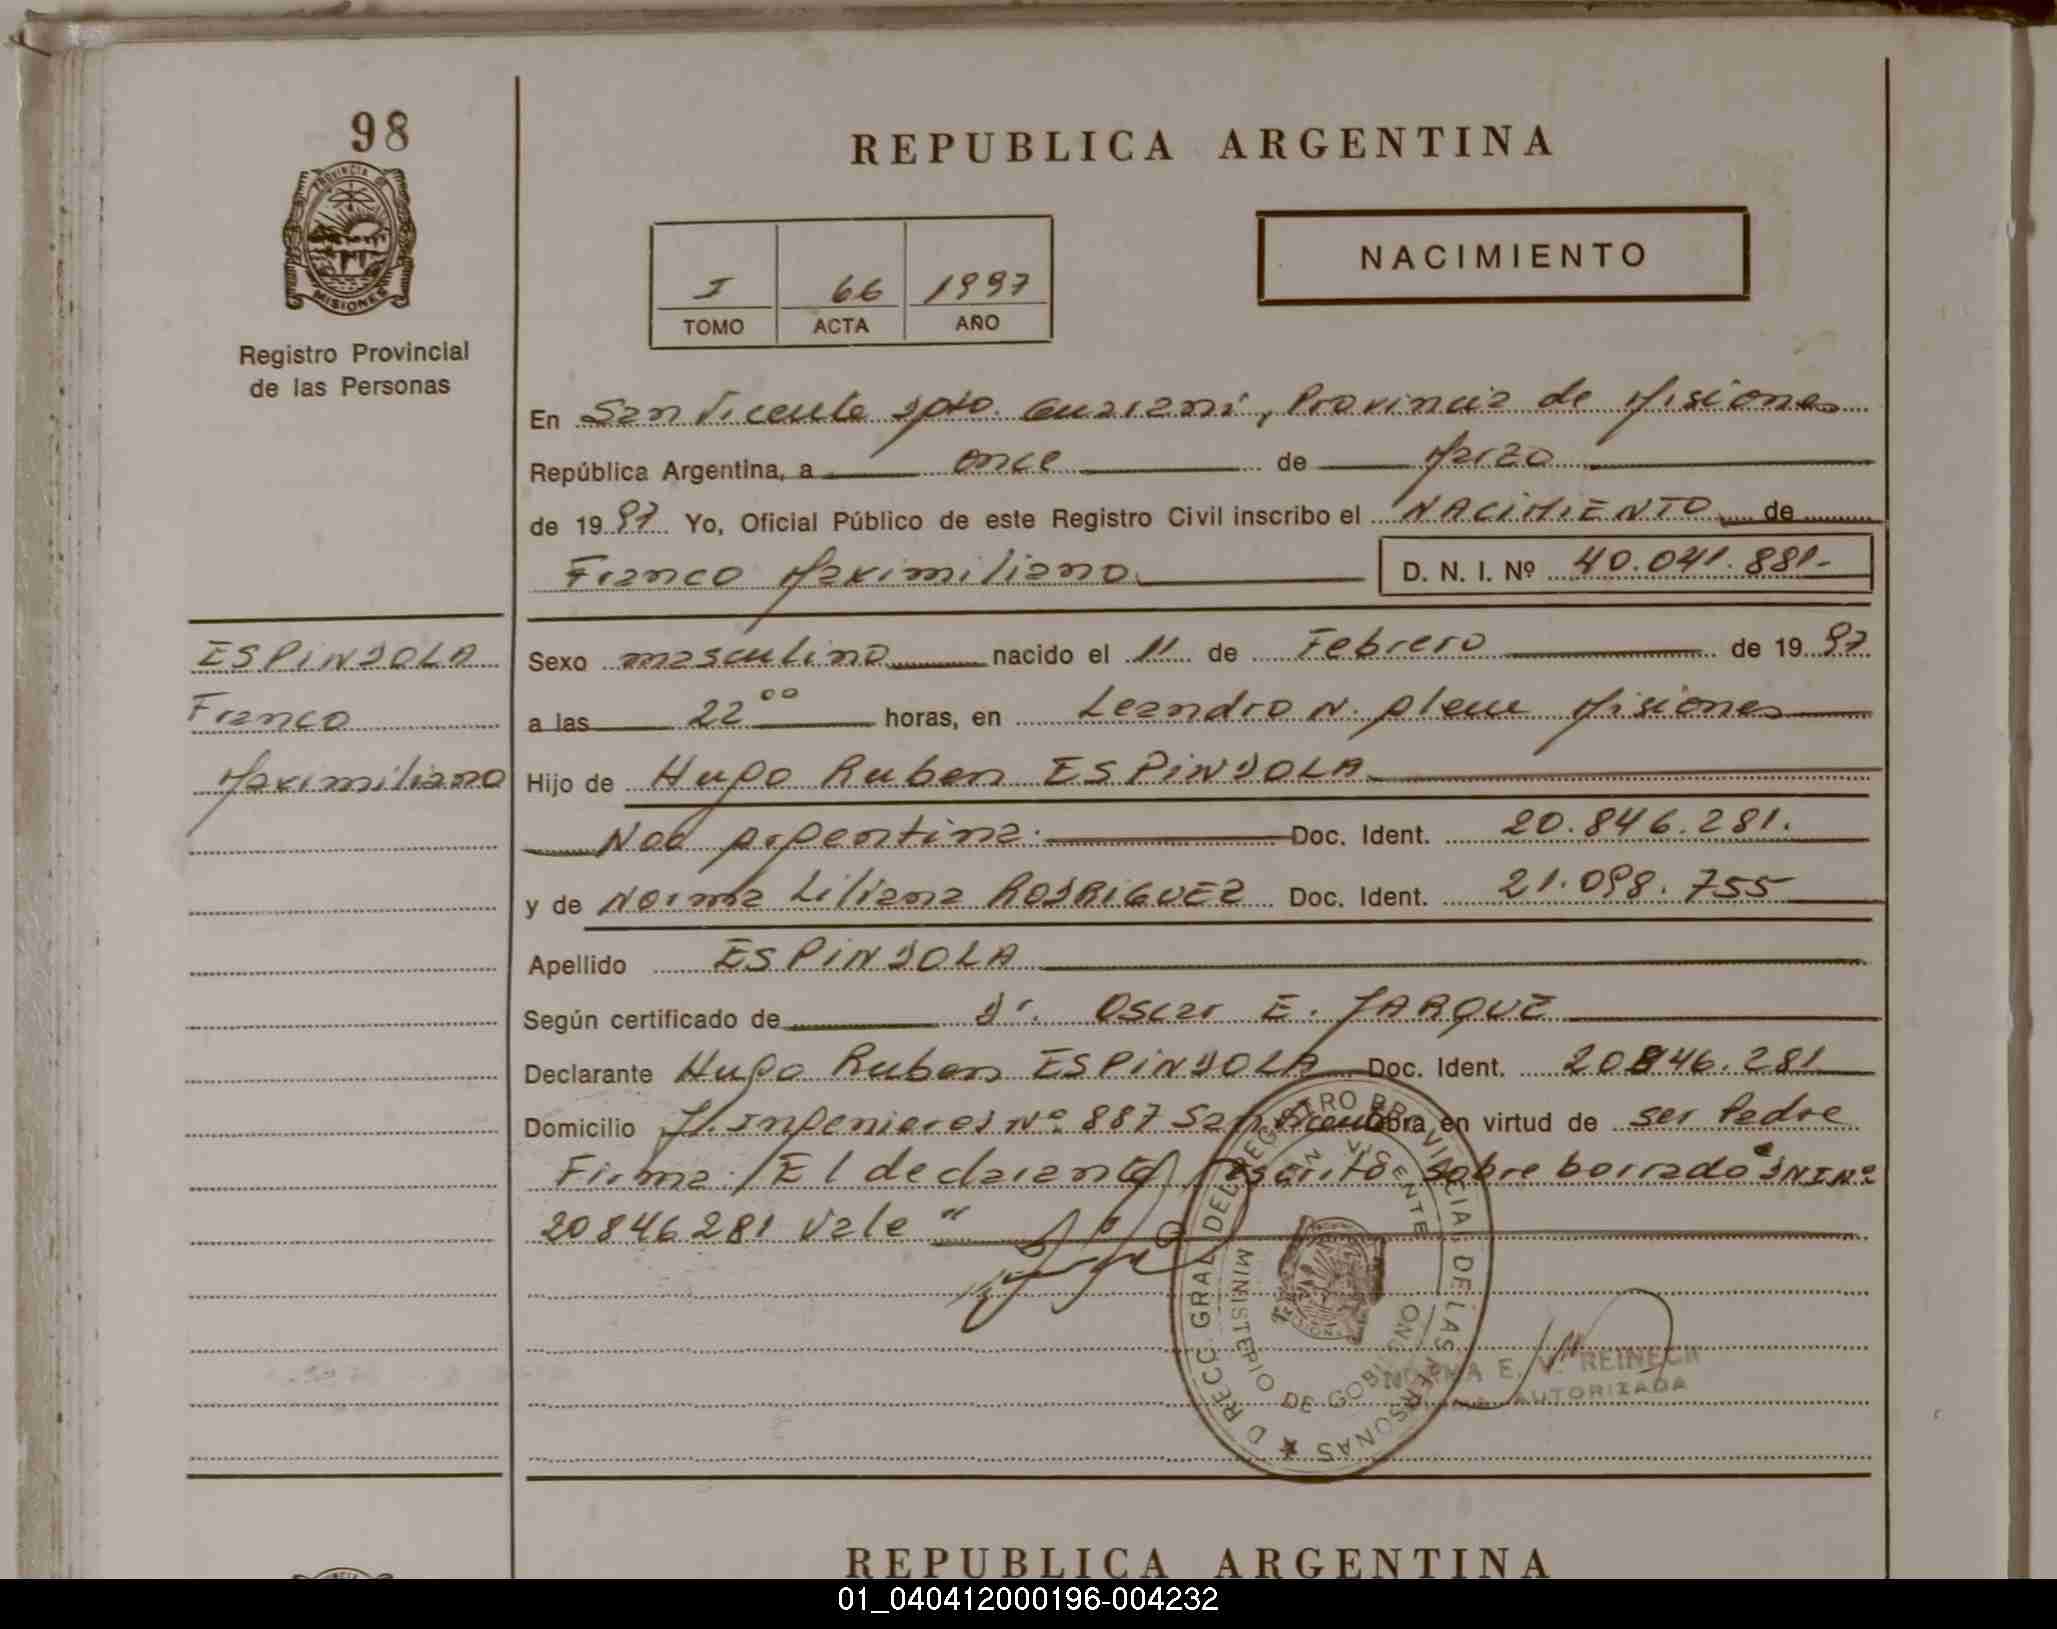 98
PROVINCIA DE
MISIONES
Registro Provincial
de las Personas
REPUBLICA ARGENTINA
I 66 1997
TOMO ACTA AÑO
NACIMIENTO
En San Vicente Dpto. Guaraní, Provincia de Misiones
República Argentina, a once de Marzo
de 1997 Yo, Oficial Público de este Registro Civil inscribo el NACIMIENTO de
Franco Maximiliano D. N. I. Nº 40.041.881.-
ESPINDOLA
Franco
Maximiliano
Sexo masculino nacido el 11 de Febrero de 1997
a las 22 00 horas, en Leandro N. Alem Misiones
Hijo de Hugo Ruben ESPINDOLA
Nac Argentina. Doc. Ident. 20.846.281.
y de Norma Liliana RODRIGUEZ Doc. Ident. 21.098.755
Apellido ESPINDOLA
Según certificado de Dr. Oscar E. JARQUE
Declarante Hugo Ruben ESPINDOLA Doc. Ident. 20846.281
Domicilio J. Ingenieros Nº 887 San Vicente Obra en virtud de ser Padre
Firma: El declarante, escrito sobre borrado "DNI Nº
20846281 Vale"
DIRECC GRAL DEL REGISTRO PROVINCIAL DE LAS PERSONAS
SAN VICENTE
MINISTERIO DE GOBIERNO
NORMA E. V. REINECK
AUTORIZADA
REPUBLICA ARGENTINA
01_040412000196-004232